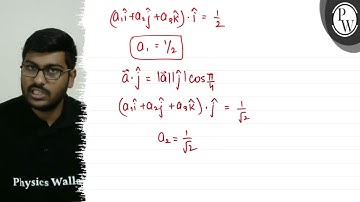 (a₁î+a₂ĵ+a₃k̂)·î = 1/2
a₁ = 1/2
a⃗·ĵ = |a⃗||ĵ|cosπ/4
(a₁î+a₂ĵ+a₃k̂)·ĵ = 1/√2
a₂ = 1/√2
PW
Physics Walla